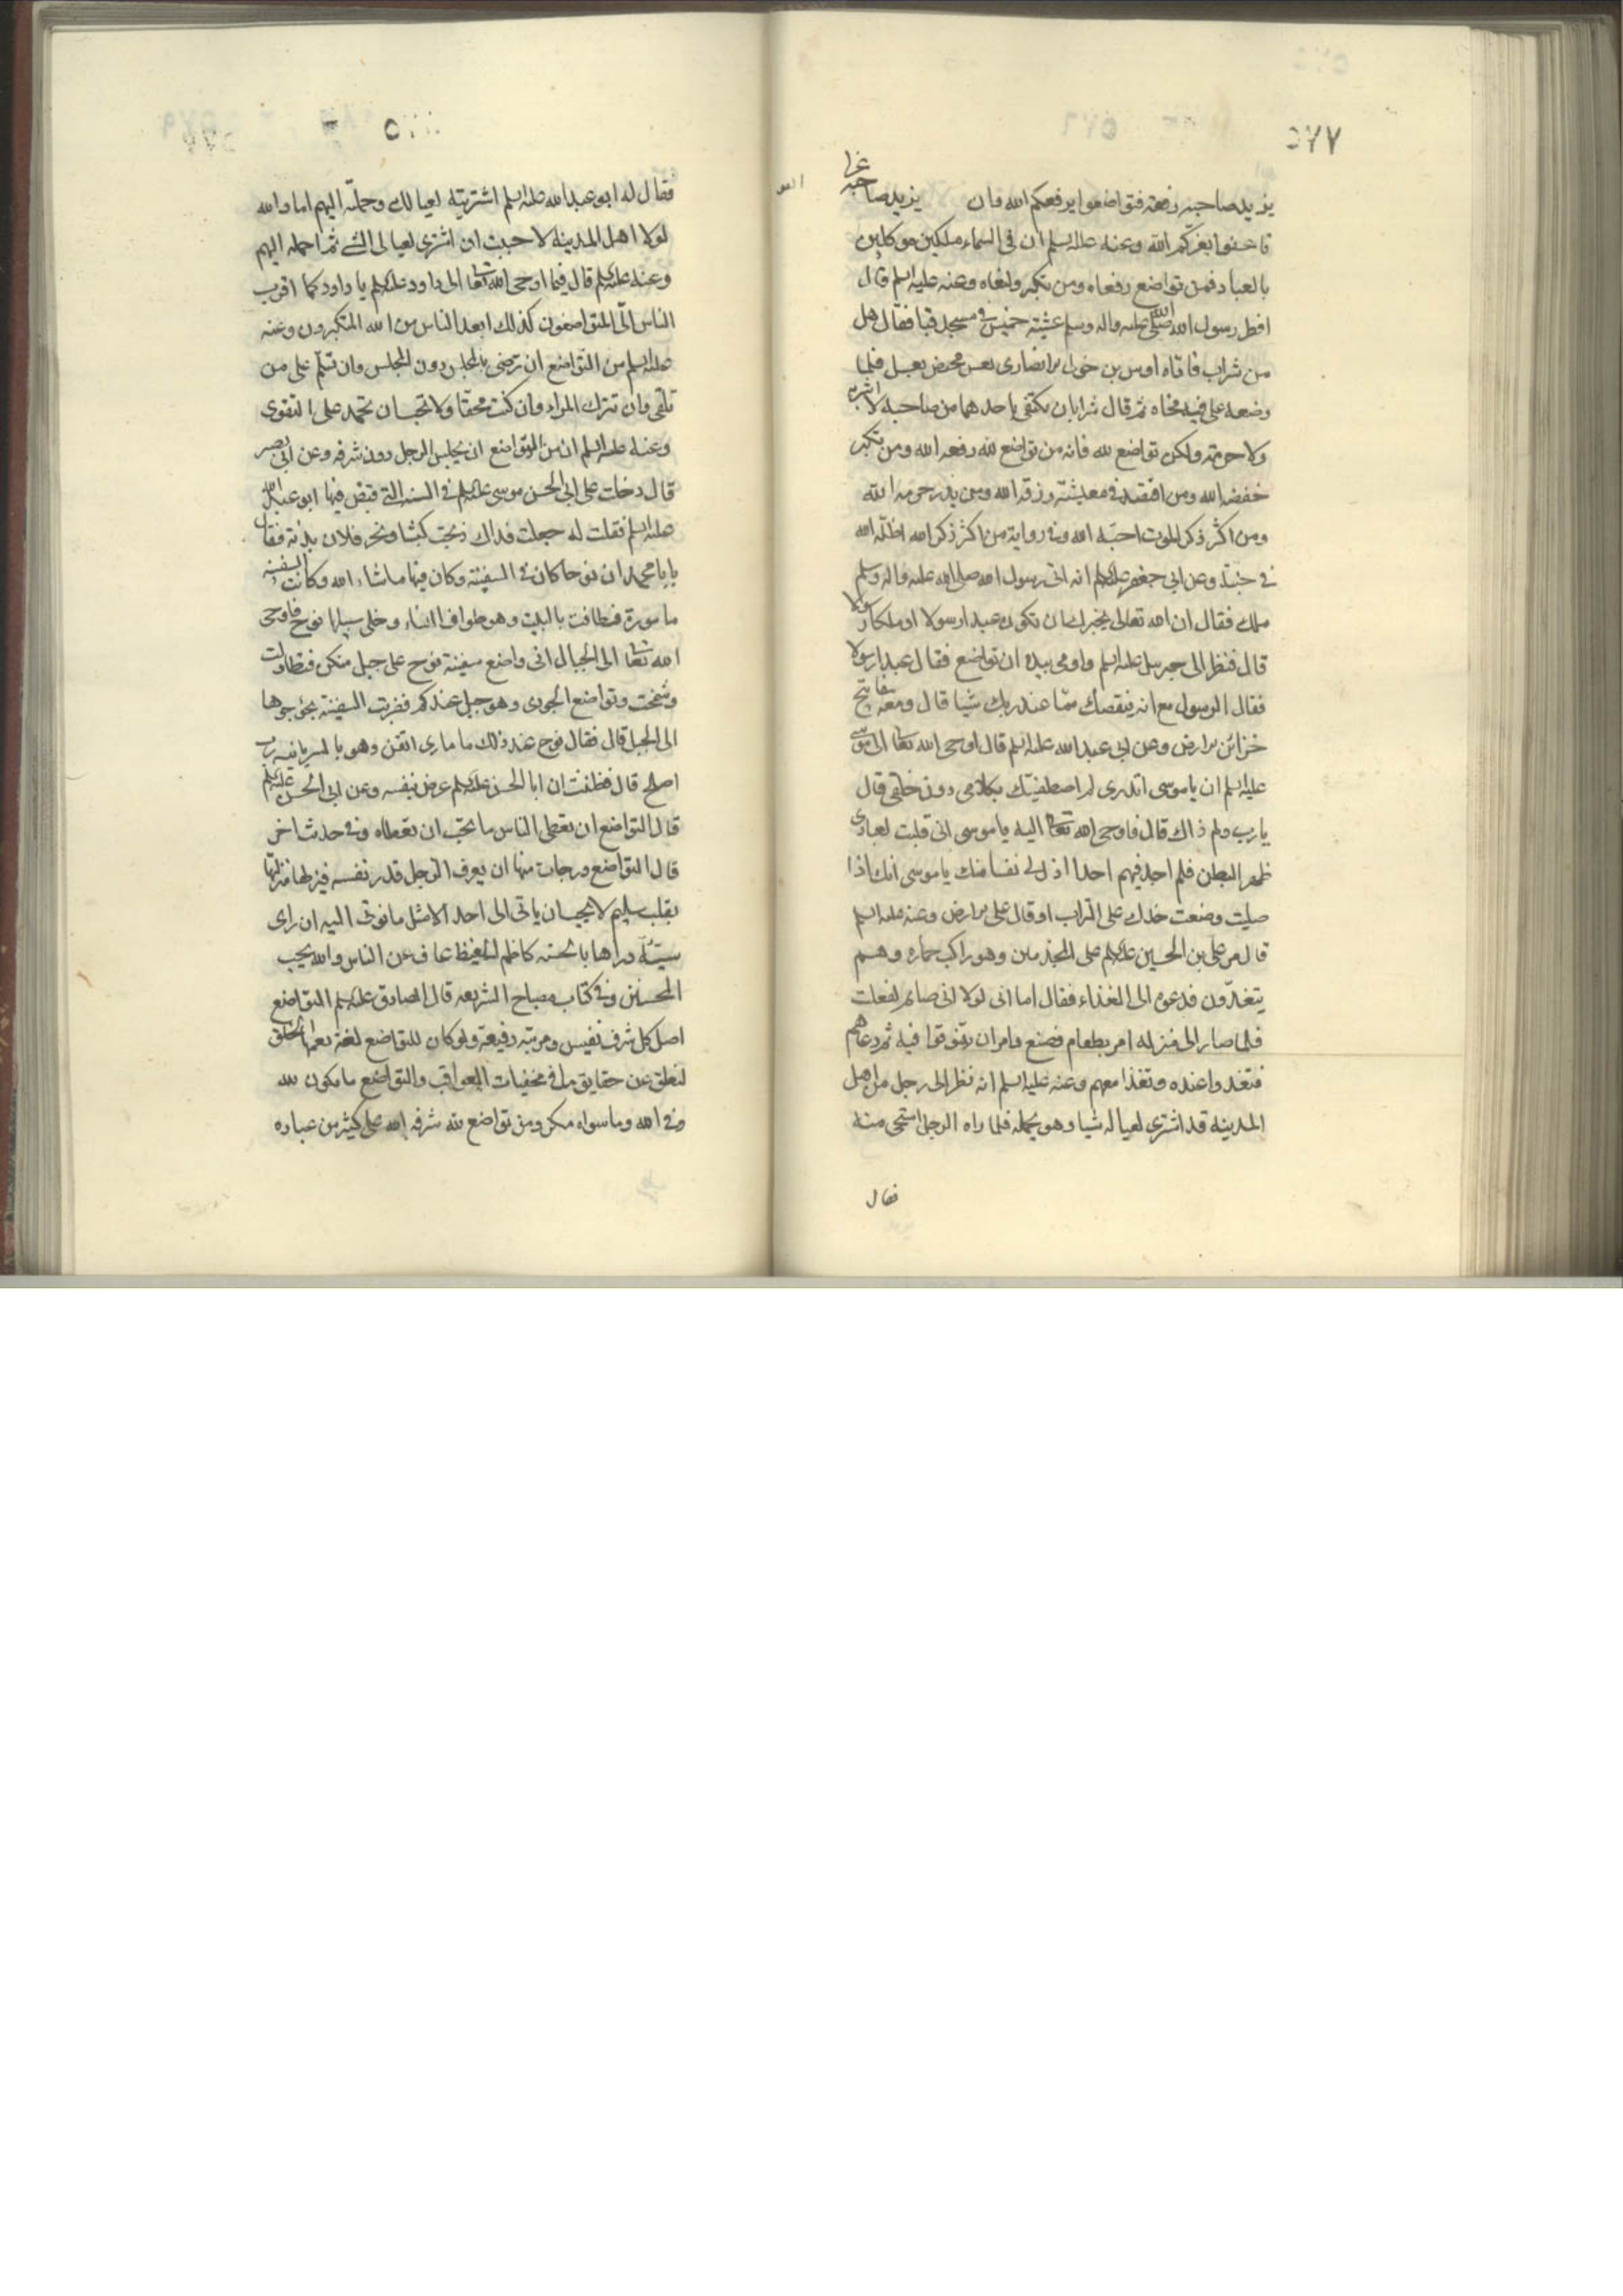 ٥٧٧
يزيد صاحبه رفعة فتواضعوا يرفعكم الله وان يزيد صاحبه عزا
فاعفوا يعزكم الله وعنه عليه السلم ان فى السماء ملكين موكلين
بالعباد فمن تواضع رفعاه ومن تكبر وضعاه وعنه عليه السلم قال
افطر رسول الله صلى الله عليه واله وسلم عشية خميس فى مسجد قبا فقال هل
من شراب فاتاه اوس بن خولى الانصارى بعس مخيض بعسل فلما
وضعه على فيه نحاه ثم قال شرابان يكتفى باحدهما من صاحبه لا اشربه
ولا احرمه ولكن تواضع لله فانه من تواضع لله رفعه الله ومن تكبر
خفضه الله ومن اقتصد فى معيشته رزقه الله ومن بذر حرمه الله
ومن اكثر ذكر الموت احبه الله وفى رواية من اكثر ذكر الله اظله الله
فى جنته وعن ابى جعفر عليه السلم انه اتى رسول الله صلى الله عليه واله وسلم
ملك فقال ان الله تعالى يخيرك ان تكون عبدا رسولا او ملكا رسولا
قال فنظر الى جبرئيل عليه السلم واومى بيده ان تواضع فقال عبدا رسولا
فقال الرسول مع انه ينقصك مما عند ربك شيا قال ومعه مفاتيح
خزائن الارض وعن ابى عبدالله عليه السلم قال اوحى الله تعالى الى موسى
عليه السلم ان ياموسى اتدرى لم اصطفيتك بكلامى دون خلقى قال
يارب ولم ذاك قال فاوحى الله تعالى اليه ياموسى انى قلبت لعبادى
ظهر البطن فلم اجد فيهم احدا اذل لى نفسا منك ياموسى انك اذا
صليت وضعت خدك على التراب او قال على الارض وعنه عليه السلم
قال مر على بن الحسين عليه السلم على المجذمين وهو راكب حماره وهم
يتغدون فدعوه الى الغذاء فقال اما انى لولا انى صايم لفعلت
فلما صار الى منزله امر بطعام فصنع وامر ان يتنوقوا فيه ثم دعاهم
فتغدوا عنده وتغذا معهم وعنه عليه السلم انه نظر الى رجل من اهل
المدينة قد اشترى لعياله شيا وهو يحمله فلما راه الرجل استحى منه
فقال
فقال له ابو عبدالله عليه السلم اشتريته لعيالك وحملته اليهم اما والله
لولا اهل المدينة لاحببت ان اشترى لعيالى الشى ثم احمله اليهم
وعنه عليه السلم قال فيما اوحى الله تعالى الى داود عليه السلم يا داود كما اقرب
الناس الى المتواضعون كذلك ابعد الناس من الله المتكبرون وعنه
عليه السلم من التواضع ان ترضى بالمجلس دون المجلس وان تسلم على من
تلقى وان تترك المراء وان كنت محقا ولا تحب ان تحمد على التقوى
وعنه عليه السلم ان من التواضع ان يجلس الرجل دون شرفه وعن ابى بصير
قال دخلت على ابى الحسن موسى عليه السلم فى السنه التى قبض فيها ابو عبدالله
عليه السلم فقلت له جعلت فداك ذبحت كبشا ونحر فلان بدنة فقال
يابا محمد ان نوحا كان فى السفينة وكان فيها ماشاء الله وكانت السفينه
مامورة فطافت بالبيت وهو طواف النساء وخلى سبيلها نوح فاوحى
الله تعالى الى الجبال انى واضع سفينة نوح على جبل منكن فتطاولت
وشمخت وتواضع الجودى وهو جبل عندكم فضربت السفينة بجؤجوها
الى الجبل قال فقال نوح عند ذلك ما مارى اتقن وهو بالسريانيه رب
اصلح قال فظننت ان ابا الحسن عليه السلم عرض بنفسه وعن ابى الحسن عليه السلم
قال التواضع ان تعطى الناس ما تحب ان تعطاه وفى حديث اخر
قال التواضع درجات منها ان يعرف الرجل قدر نفسه فينزلها منزلتها
بقلب سليم لا يحب ان ياتى الى احد الا مثل ما يوتى اليه ان راى
سيئة دراها بالحسنه كاظم الغيظ عاف عن الناس والله يحب
المحسنين وفى كتاب مصباح الشريعه قال الصادق عليه السلم التواضع
اصل كل شرف نفيس ومرتبة رفيعة ولو كان للتواضع لغة يفهمها الخلق
لنطق عن حقايق ما فى مخفيات العواقب والتواضع ما يكون لله
وفى الله وما سواه مكر ومن تواضع لله شرفه الله على كثير من عباده